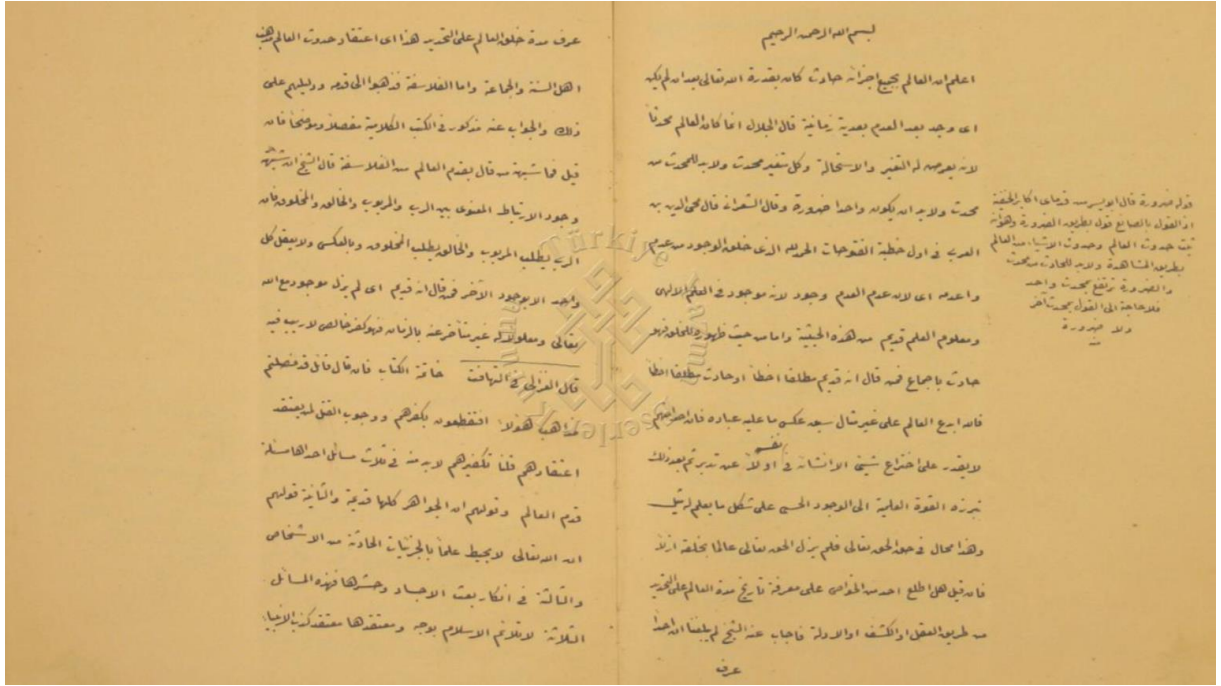 بسم الله الرحمن الرحيم
اعلم ان العالم بجميع اجزائه حادث كان بقدرة الله تعالى بعد ان لم يكن
اى وجد بعد العدم بعدية زمانية قال الجلال انما كان العالم محدثا
لانه يعرض له التغير والاستحالة وكل متغير محدث ولا بد للمحدث من
محدث ولا بد ان يكون واحدا ضرورة وقال الشعرانى قال محى الدين بن
العربى فى اول خطبة الفتوحات الحمد لله الذى خلق الوجود من عدم
واعدمه اى لان عدم العدم وجود لانه موجود فى العلم الالهى
ومعلوم العلم قديم من هذه الحيثية واما من حيث ظهوره للخلق فهو
حادث باجماع فمن قال انه قديم مطلقا اخطأ او حادث مطلقا اخطأ
فالله ابدع العالم على غير مثال سبق عكس ما عليه عباده فان احدهم
لا يقدر على اختراع شيئ الا انشائه فى نفسه اولا عن تدبر ثم بعد ذلك
تبرزه القوة العلمية الى الوجود الحسى على شكل ما يعلم له مثل
وهذا محال فى حق الحق تعالى فلم يزل الحق تعالى عالما بخلقه ازلا
فان قيل هل اطلع احد من الخواص على معرفة تاريخ مدة العالم على التحديد
من طريق العقل او الكشف او الادلة فاجاب عنه الشيخ لم يبلغنا ان احدا
عرف
قوله ضرورة قال ابو اليسر من قدماى اكابر الحنفية
اذ القول بالصانع قول بطريق الضرورة وهو انه
ثبت حدوث العالم وحدوث الاشياء من العالم
بطريق المشاهدة ولا بد للحادث من محدث
والضرورة ترتفع بمحدث واحد
فلا حاجة الى القول بمحدث آخر
ولا ضرورة
عرف مدة خلق العالم على التحديد هذا اى اعتقاد حدوث العالم مذهب
اهل السنة والجماعة واما الفلاسفة فذهبوا الى قدمه ودليلهم على
ذلك والجواب عنه مذكور فى الكتب الكلامية مفصلا وموضحا فان
قيل فما شبهة من قال بقدم العالم من الفلاسفة قال الشيخ ان شبهتهم
وجود الارتباط المعنوى بين الرب والمربوب والخالق والمخلوق فان
الرب يطلب المربوب والخالق يطلب المخلوق وبالعكس ولا يعقل كل
واحد الا بوجود الآخر فمن قال انه قديم اى لم يزل موجود مع الله
تعالى ومعلولا له غير متأخر عنه بالزمان فهو كفر خالص لا ريب فيه
قال الغزالى فى التهافت خاتمة الكتاب فان قال قائل قد فصلتم
مذاهب هؤلاء افتقطعون بكفرهم ووجوب القتل لمن يعتقد
اعتقادهم قلنا تكفيرهم لا بد منه فى ثلاث مسائل احداها مسئلة
قدم العالم وقولهم ان الجواهر كلها قديمة والثانية قولهم
ان الله تعالى لا يحيط علما بالجزئيات الحادثة من الاشخاص
والثالثة فى انكار بعث الاجساد وحشرها فهذه المسائل
الثلاثة لا تلائم الاسلام بوجه ومعتقدها معتقد كذب الانبياء
Türkiye Yazma Eserler Kurumu